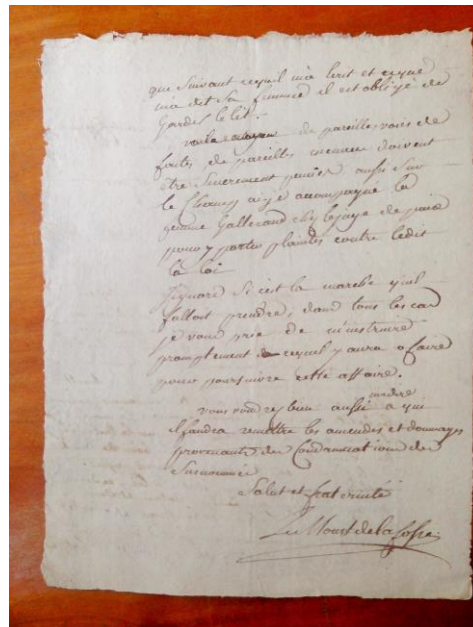 que suivant cequil m'a Ecrit et ceque
m'a dit sa femme il est obligé de
Garder le lit.
voila citoyen de pareilles voies de
faites de pareilles menaces doivent
être severement punies aussi sur
le champ ai je accompagné la
femme Gallerand chez le juge de paix
pour y porter plaintes contre ledit
la loi
Jignore si cest la marche quil
falloit prendre, dans tous les cas
je vous prie de m'instruire
promptement de cequil y aura a faire
pour poursuivre cette affaire.
vous voudrez bien aussi me dire a qui
il faudra remettre les amendes et dommages
provenants des Condamnations de
Salut et fraternité